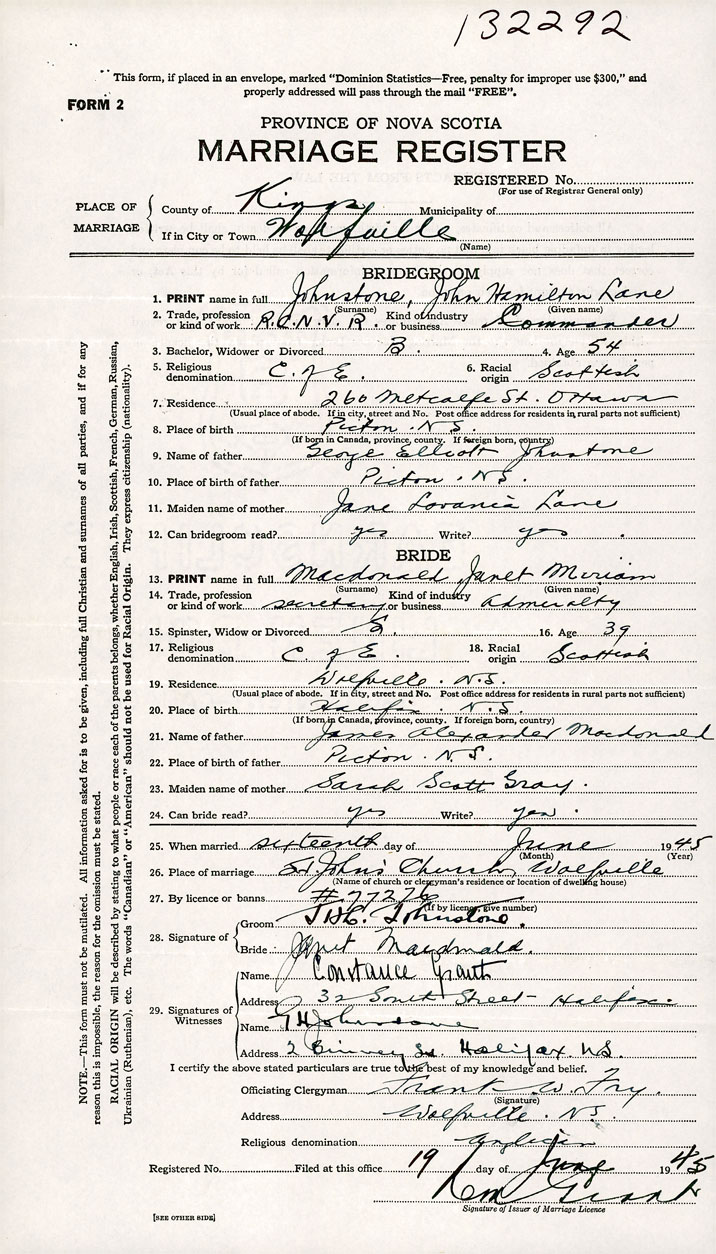 132292
This form, if placed in an envelope, marked "Dominion Statistics—Free, penalty for improper use $300," and
properly addressed will pass through the mail "FREE".
FORM 2
PROVINCE OF NOVA SCOTIA
MARRIAGE REGISTER
REGISTERED No.
(For use of Registrar General only)
PLACE OF MARRIAGE
County of Kings Municipality of
If in City or Town Wolfville
(Name)
BRIDEGROOM
1. PRINT name in full Johnstone, John Hamilton Lane
(Surname) (Given name)
2. Trade, profession or kind of work R.C.N.V.R. Kind of industry or business Commander
3. Bachelor, Widower or Divorced B. 4. Age 54
5. Religious denomination C. of E. 6. Racial origin Scottish
7. Residence 260 Metcalfe St. Ottawa
(Usual place of abode. If in city, street and No. Post office address for residents in rural parts not sufficient)
8. Place of birth Picton. N.S.
(If born in Canada, province, county. If foreign born, country)
9. Name of father George Elliott Johnstone
10. Place of birth of father Picton. N.S.
11. Maiden name of mother Jane Lovania Lane
12. Can bridegroom read? yes Write? yes
BRIDE
13. PRINT name in full Macdonald Janet Miriam
(Surname) (Given name)
14. Trade, profession or kind of work secretary Kind of industry or business Admiralty
15. Spinster, Widow or Divorced S. 16. Age 39
17. Religious denomination C. of E. 18. Racial origin Scottish
19. Residence Wolfville. N.S.
(Usual place of abode. If in city, street and No. Post office address for residents in rural parts not sufficient)
20. Place of birth Halifax. N.S.
(If born in Canada, province, county. If foreign born, country)
21. Name of father James Alexander Macdonald
22. Place of birth of father Picton. N.S.
23. Maiden name of mother Sarah Scott Gray.
24. Can bride read? yes Write? yes.
25. When married sixteenth day of June 1945
(Month) (Year)
26. Place of marriage St John's Church, Wolfville
(Name of church or clergyman's residence or location of dwelling house)
27. By licence or banns #77276
(If by licence, give number)
28. Signature of
Groom J.H.L. Johnstone.
Bride Janet Macdonald.
29. Signatures of Witnesses
Name Constance Grant
Address 32 South Street - Halifax.
Name Johnstone
Address 2 Binney St. Halifax N.S.
I certify the above stated particulars are true to the best of my knowledge and belief.
Officiating Clergyman Frank W. Fry.
(Signature)
Address Wolfville. N.S.
Religious denomination Anglican
Registered No. Filed at this office 19 day of June 1945
Grant
Signature of Issuer of Marriage Licence
[SEE OTHER SIDE]
NOTE.—This form must not be mutilated. All information asked for is to be given, including full Christian and surnames of all parties, and if for any
reason this is impossible, the reason for the omission must be stated.
RACIAL ORIGIN will be described by stating to what people or race each of the parents belongs, whether English, Irish, Scottish, French, German, Russian,
Ukrainian (Ruthenian), etc. The words "Canadian" or "American" should not be used for Racial Origin. They express citizenship (nationality).